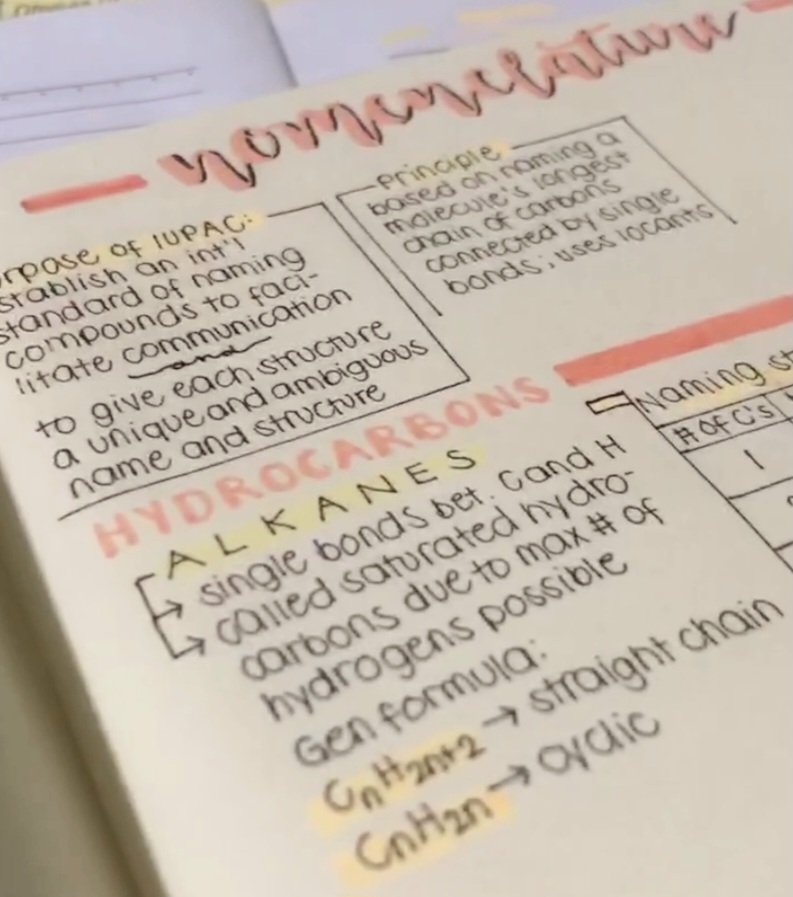 nomenclature
rpose of IUPAC:
stablish an int'l
standard of naming
compounds to faci-
litate communication
and
to give each structure
a unique and ambiguous
name and structure
Principle
based on naming a
molecule's longest
chain of carbons
connected by single
bonds; uses locants
HYDROCARBONS
ALKANES
→ single bonds bet. C and H
→ called saturated hydro-
carbons due to max # of
hydrogens possible
Gen formula:
CnH2n+2 → straight chain
CnH2n → cyclic
Naming st
# OF C's
1